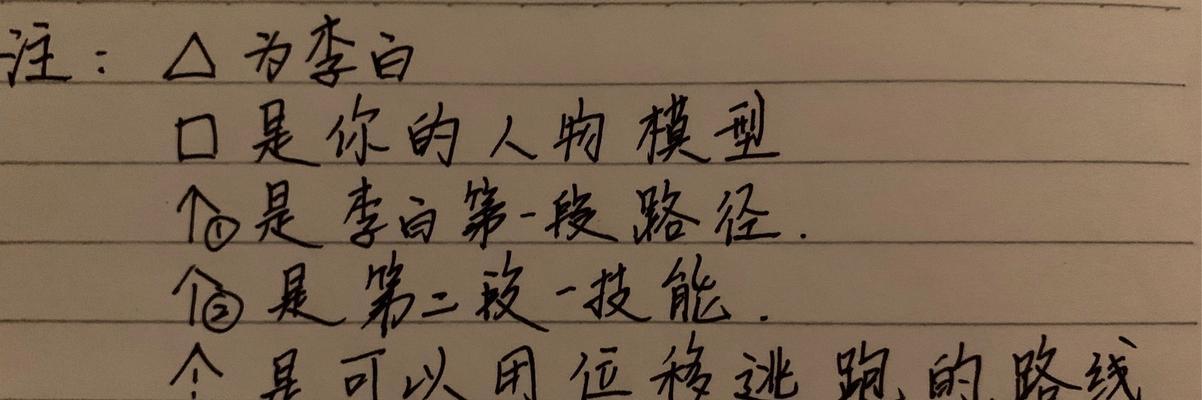 注：△为李白
□是你的人物模型
↑①是李白第一段路径.
↑②是第二段一技能.
↑是可以用位移逃跑的路线